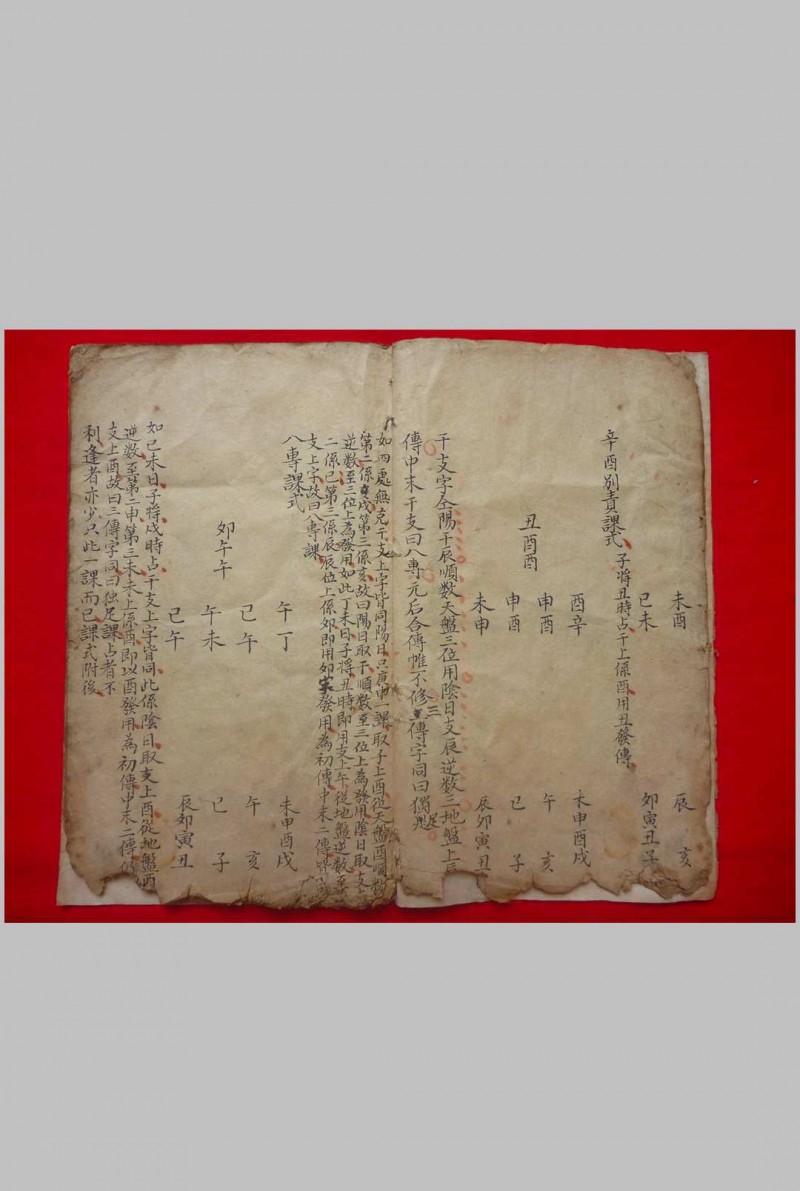 未酉　辰　亥
巳未　卯寅丑子
辛酉別責課式　子將丑時占干上係酉用丑發傳
酉辛　未申酉戌
申酉　午　亥
丑酉酉
申酉　巳　子
未申　辰卯寅丑
干支字仝陽干辰順數天盤三位用陰日支辰逆數三地盤上
傳中末干支曰八專元后合傳帷不修三傳字同曰獨足
如四處無克干支上字皆同陽日只庚申一課取干上酉從天盤酉順數
第二係戌第三係亥故曰陽日取干順數至三位上為發用陰日取支
逆数至三位上為發用如此丁未日子將丑時即用支上午從地盤逆数至
二係巳第三係辰辰位上係卯即用卯發用為初傳中末二傳皆
支上字故曰八專課
八專課式
午丁　未申酉戌
己午　午　亥
卯午午
午未　巳　子
己午　辰卯寅丑
如己未日子將戌時占干支上字皆同此係陰日取支上酉從地盤酉
逆數至第二申第三未未上係酉即以酉發用為初傳中末二傳
支上酉故曰三傳字同曰独足課占者不
利逢者亦少只此一課而已課式附後